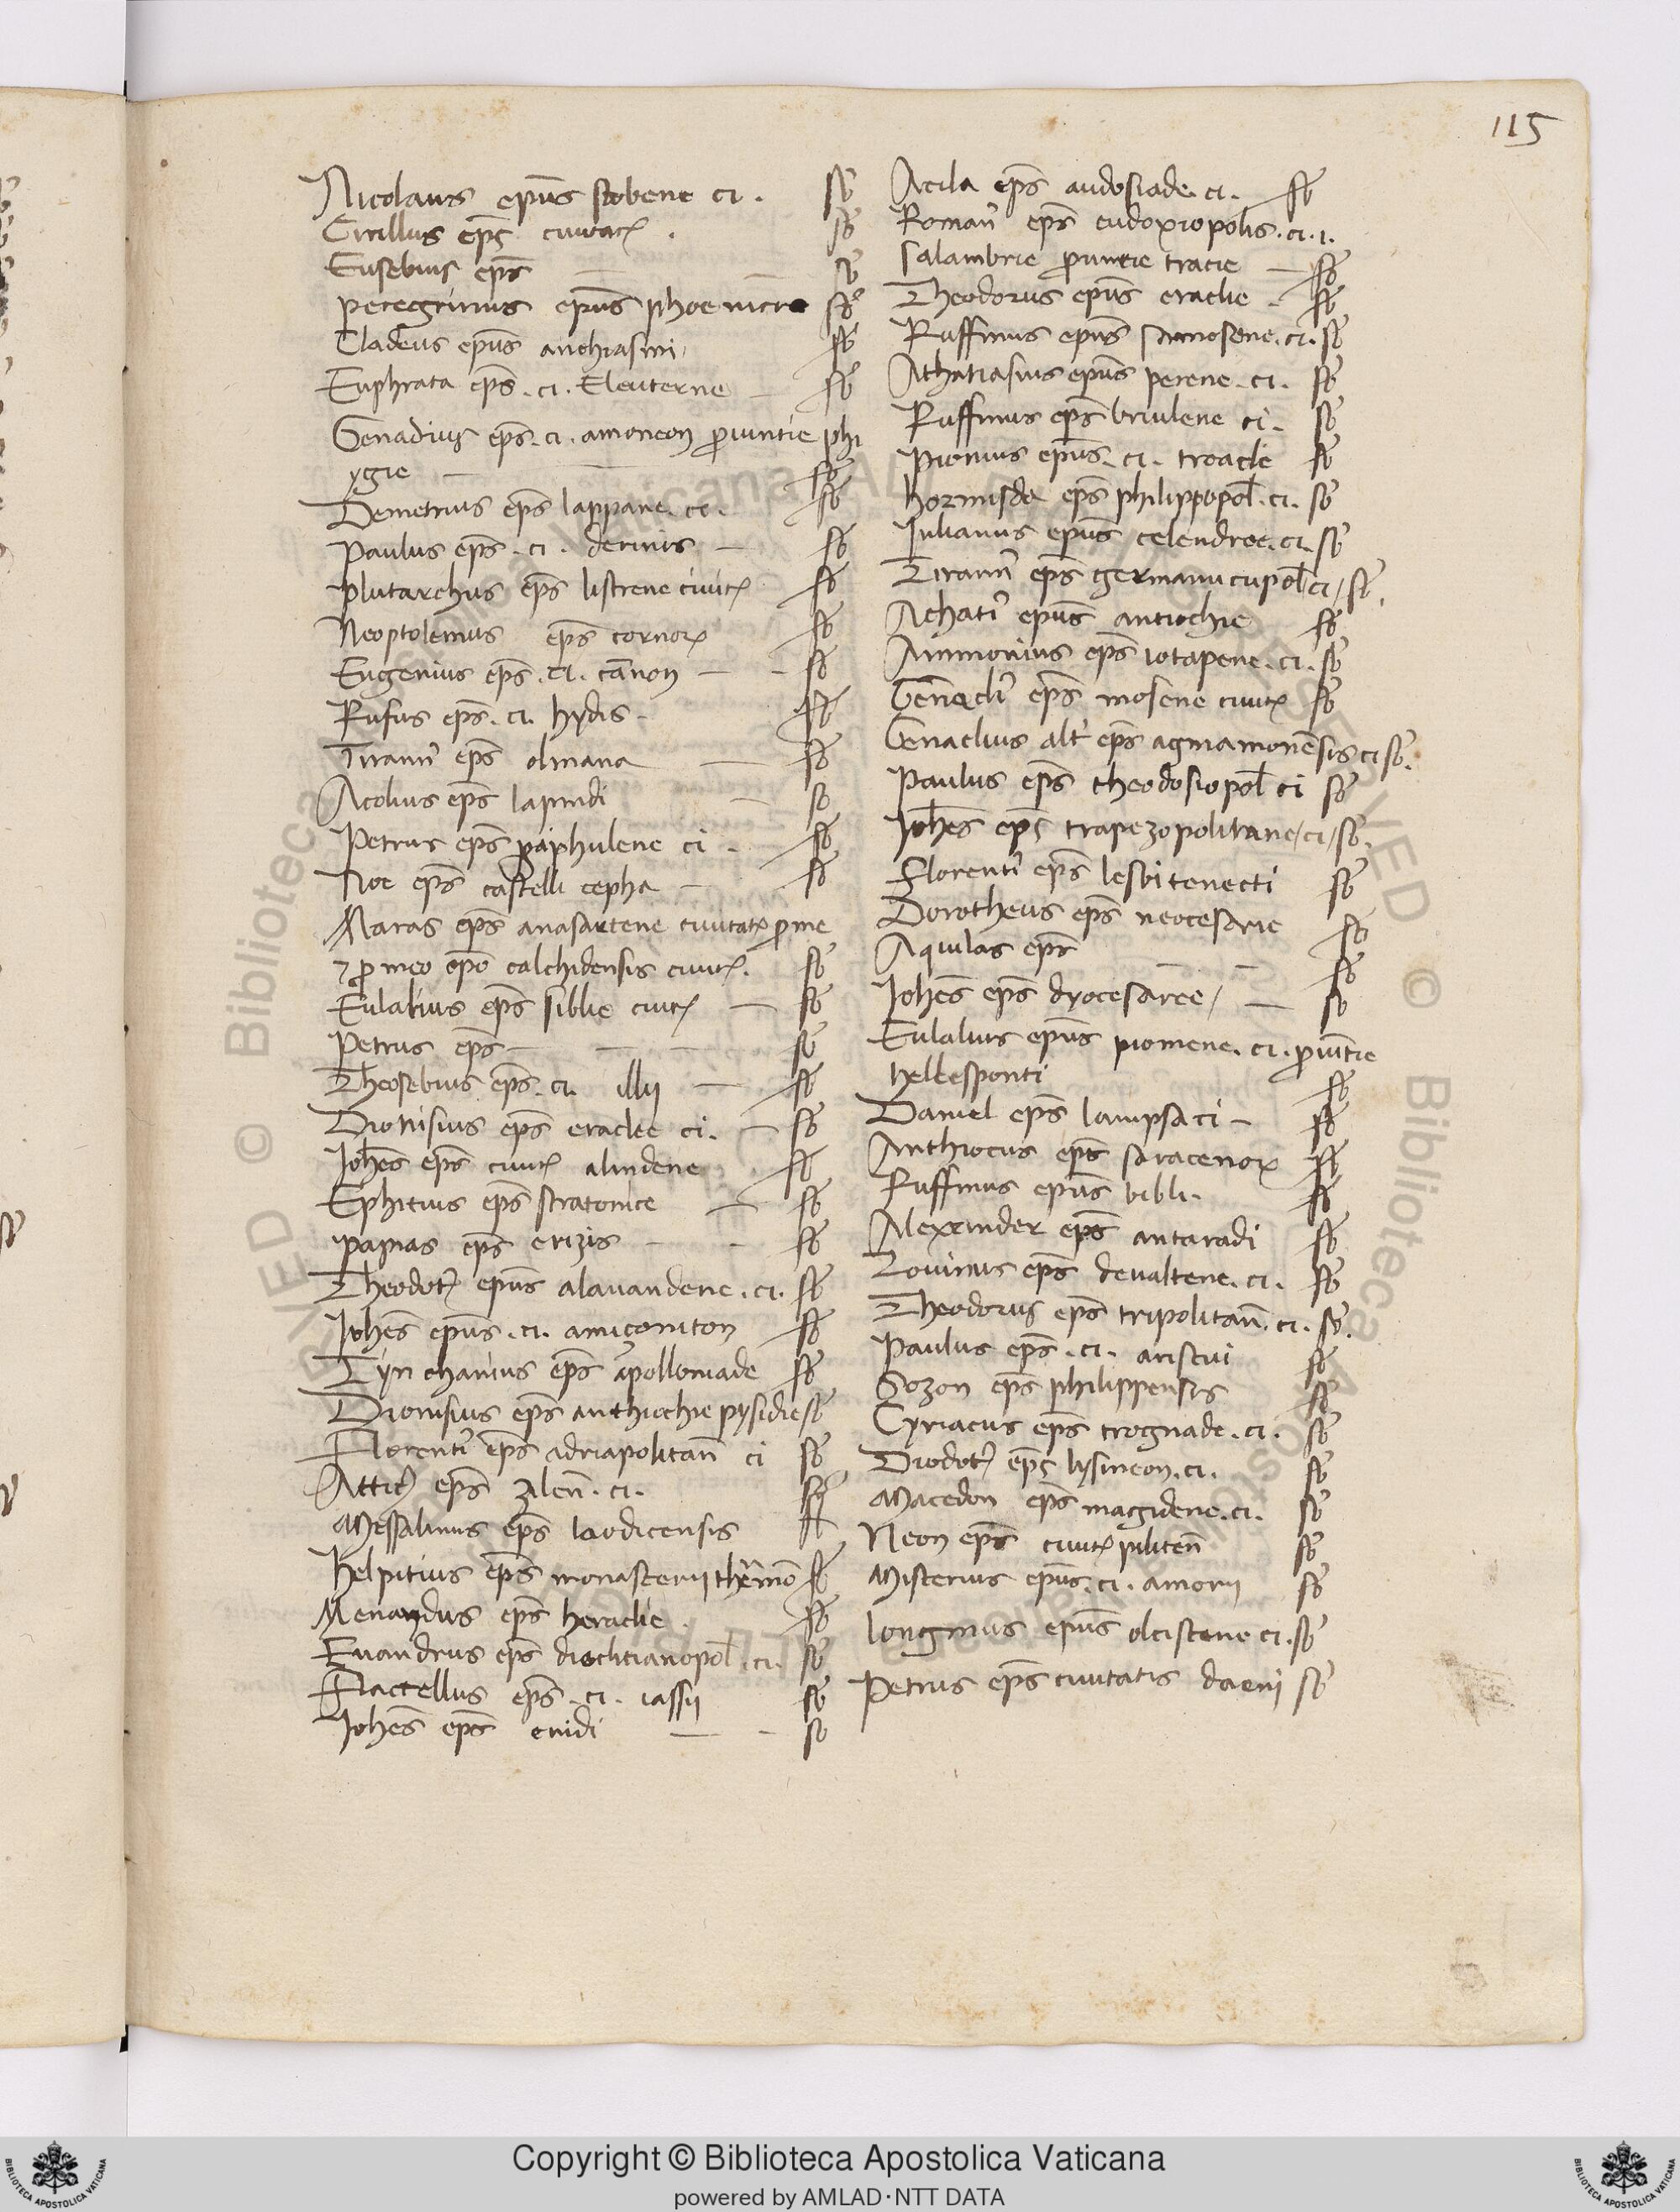 115
Nicolaus ep̄us stobene ci. sb̄
Cirillus ep̄s ciuitatꝭ. sb̄
Eusebius ep̄s — sb̄
peregrinus ep̄us phoenicre sb̄
Cladeus ep̄us anchiasmi sb̄
Euphrata ep̄s. ci. Eleuterne — sb̄
Genadius ep̄s. ci. amoneon ꝓuintie phi
ygie — sb̄
Demetrius ep̄s lappane. ci. sb̄
Paulus ep̄s. ci. deruis — sb̄
plutarchus ep̄s listrene ciuitꝭ sb̄
Neoptolemus ep̄s cornoꝝ sb̄
Eugenius ep̄s. ci. cānon — sb̄
Rufus ep̄s. ci. hydis. sb̄
Tirann᾽ ep̄s olmana — sb̄
Acolius ep̄s lapindi — sb̄
Petrus ep̄s paiphulene ci. sb̄
Noe ep̄s castelli cepha — sb̄
Maras ep̄s anasartene ciuitatꝭ ꝓ me
⁊ ꝓ meo ep̄o calchidensis ciuitꝭ. sb̄
Eulalius ep̄s siblie ciuitꝭ — sb̄
Petrus ep̄s — sb̄
Theosebius ep̄s. ci. illij — sb̄
Dionisius ep̄s eraclee ci. — sb̄
Joh̄es ep̄s ciuitꝭ alindene sb̄
Ephitius ep̄s stratonice — sb̄
papias ep̄s erizis — sb̄
Theodot᾽ ep̄us alauandene. ci. sb̄
Joh̄es ep̄us. ci. amiçoniton sb̄
Tynchanius ep̄s apolloniade sb̄
Dionisius ep̄s anthiochie pysidie sb̄
Florenti᾽ ep̄s adriapolitan̄ ci sb̄
Attic᾽ ep̄s zilen̄. ci. sb̄
Messalinus ep̄s laodicensis sb̄
helpitius ep̄s monasterij thermō sb̄
Menandus ep̄s heraclie. sb̄
Euandrus ep̄s dioclitianopol̄. ci. sb̄
Flaccellus ep̄s. ci. iassij sb̄
Joh̄es ep̄s enidi — sb̄
Acila ep̄s audosiade. ci. sb̄
Roman᾽ ep̄s eudoxiopolis. ci. i.
salambrie ꝓuintie tracie — sb̄
Theodorus ep̄us eraclie. sb̄
Ruffinus ep̄us samosene. ci. sb̄
Athatiasius ep̄us perene. ci. sb̄
Ruffinus ep̄s briulene ci. sb̄
Pionius ep̄us. ci. troadle sb̄
hormisda ep̄s philippopol̄. ci. sb̄
Julianus ep̄us celendroe. ci. sb̄
Tirann᾽ ep̄s germanucupol̄ ci / sb̄.
Achati᾽ ep̄us antiochie sb̄
Ammonius ep̄s iotapene. ci. sb̄
Gen̄adi᾽ ep̄s mosene ciuitꝭ sb̄
Genadius alt᾽ ep̄s agmamonēsis ci sb̄.
Paulus ep̄s theodosiopol̄ ci sb̄
Joh̄es ep̄s trapezopolitane / ci / sb̄.
Florenti᾽ ep̄s lesbi tenecti sb̄
Dorotheus ep̄s neocesarie sb̄
Aquilas ep̄s — sb̄
Joh̄es ep̄s dyocesaree / — sb̄
Eulalius ep̄us piomene. ci. ꝓuintie
hellesponti sb̄
Daniel ep̄s lampsaci — sb̄
Anthiocus ep̄s saracenoꝝ sb̄
Ruffinus ep̄us bibli. sb̄
Alexander ep̄s antaradi sb̄
Iouinus ep̄s deualtene. ci. sb̄
Theodorus ep̄s tripolitan̄. ci. sb̄.
Paulus ep̄s. ci. aristui sb̄
Sozon ep̄s philippensis sb̄
Cyriacus ep̄s trognade. ci. sb̄
Diodot᾽ ep̄s lysineon. ci. sb̄
Macedon ep̄s magidene. ci. sb̄
Neon ep̄s ciuitꝭ siliten̄ sb̄
Misterius ep̄us. ci. amorij sb̄
longinus ep̄us olcistene ci. sb̄
Petrus ep̄s ciuitatis daeni sb̄
Copyright © Biblioteca Apostolica Vaticana
powered by AMLAD·NTT DATA